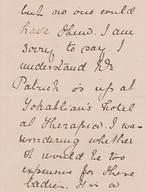 but no one could
have them. I am
sorry to say. I
understand Mr
Patrick is up at
Tokatlian's Hotel
at Therapia. I was
wondering whether
it would be too
expensive for these
ladies. It is a